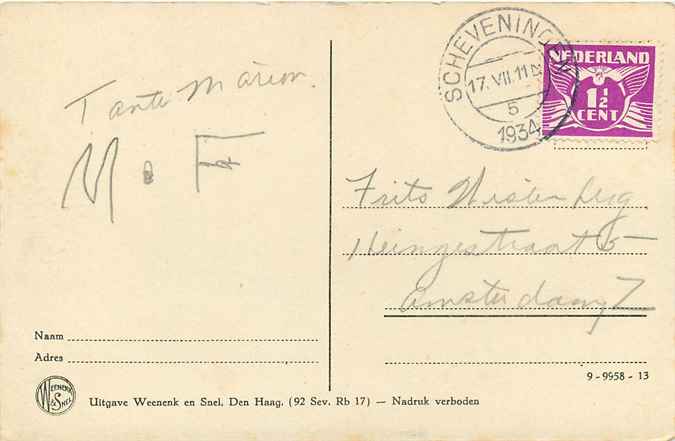 Tante Marion.
M. F
SCHEVENINGEN
17.VII.11
5
1934
NEDERLAND
1½
CENT
Frits
5
Amsterdam Z
Naam
Adres
WEENENK & SNEL
9-9958-13
Uitgave Weenenk en Snel, Den Haag. (92 Sev. Rb 17) — Nadruk verboden